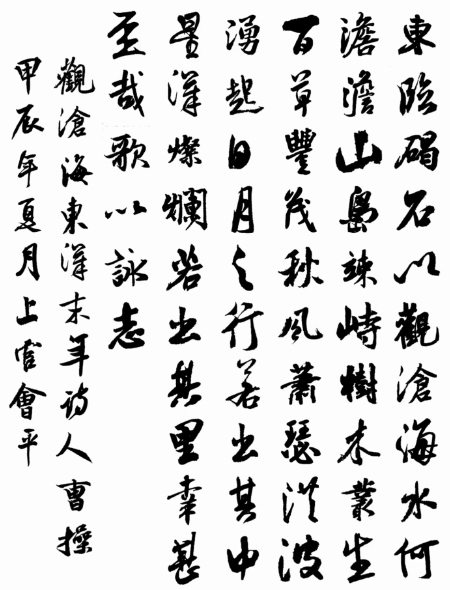 東臨碣石以觀滄海水何
澹澹山島竦峙樹木叢生
百草豐茂秋風蕭瑟洪波
湧起日月之行若出其中
星漢燦爛若出其里幸甚
至哉歌以詠志
觀滄海東漢末年詩人曹操
甲辰年夏月上官會平